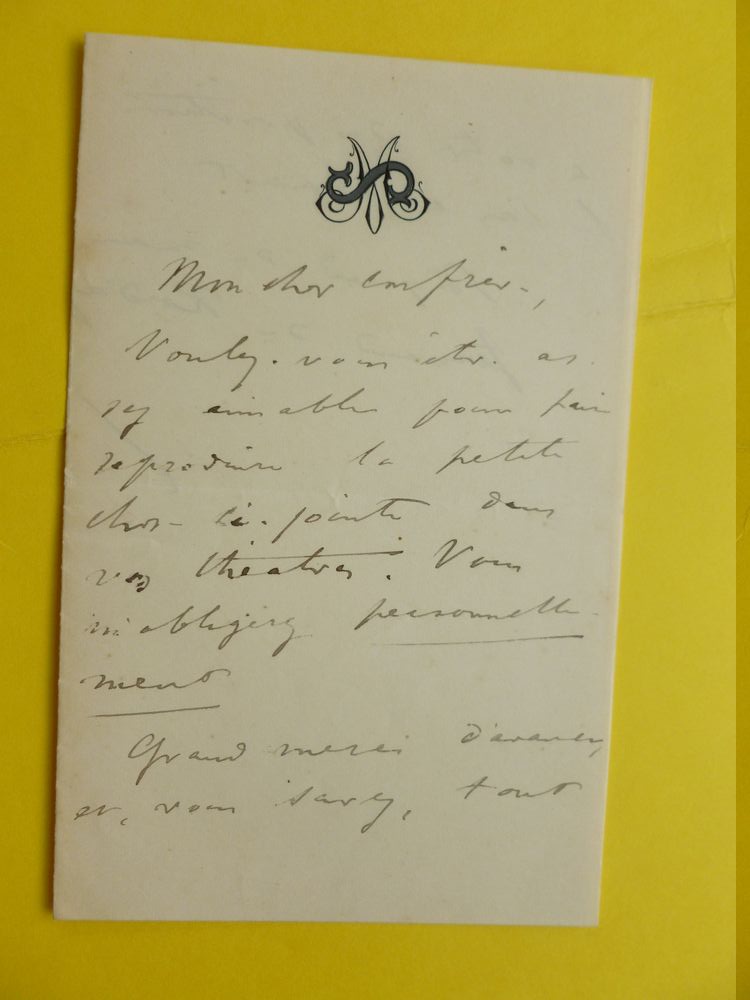 Mon cher confrère,
Voulez-vous être as-
sez aimable pour faire
reproduire la petite
chose ci-jointe dans
vos théâtres. Vous
m'obligerez personnelle-
ment
Grand merci d'avance,
et, vous savez, tout